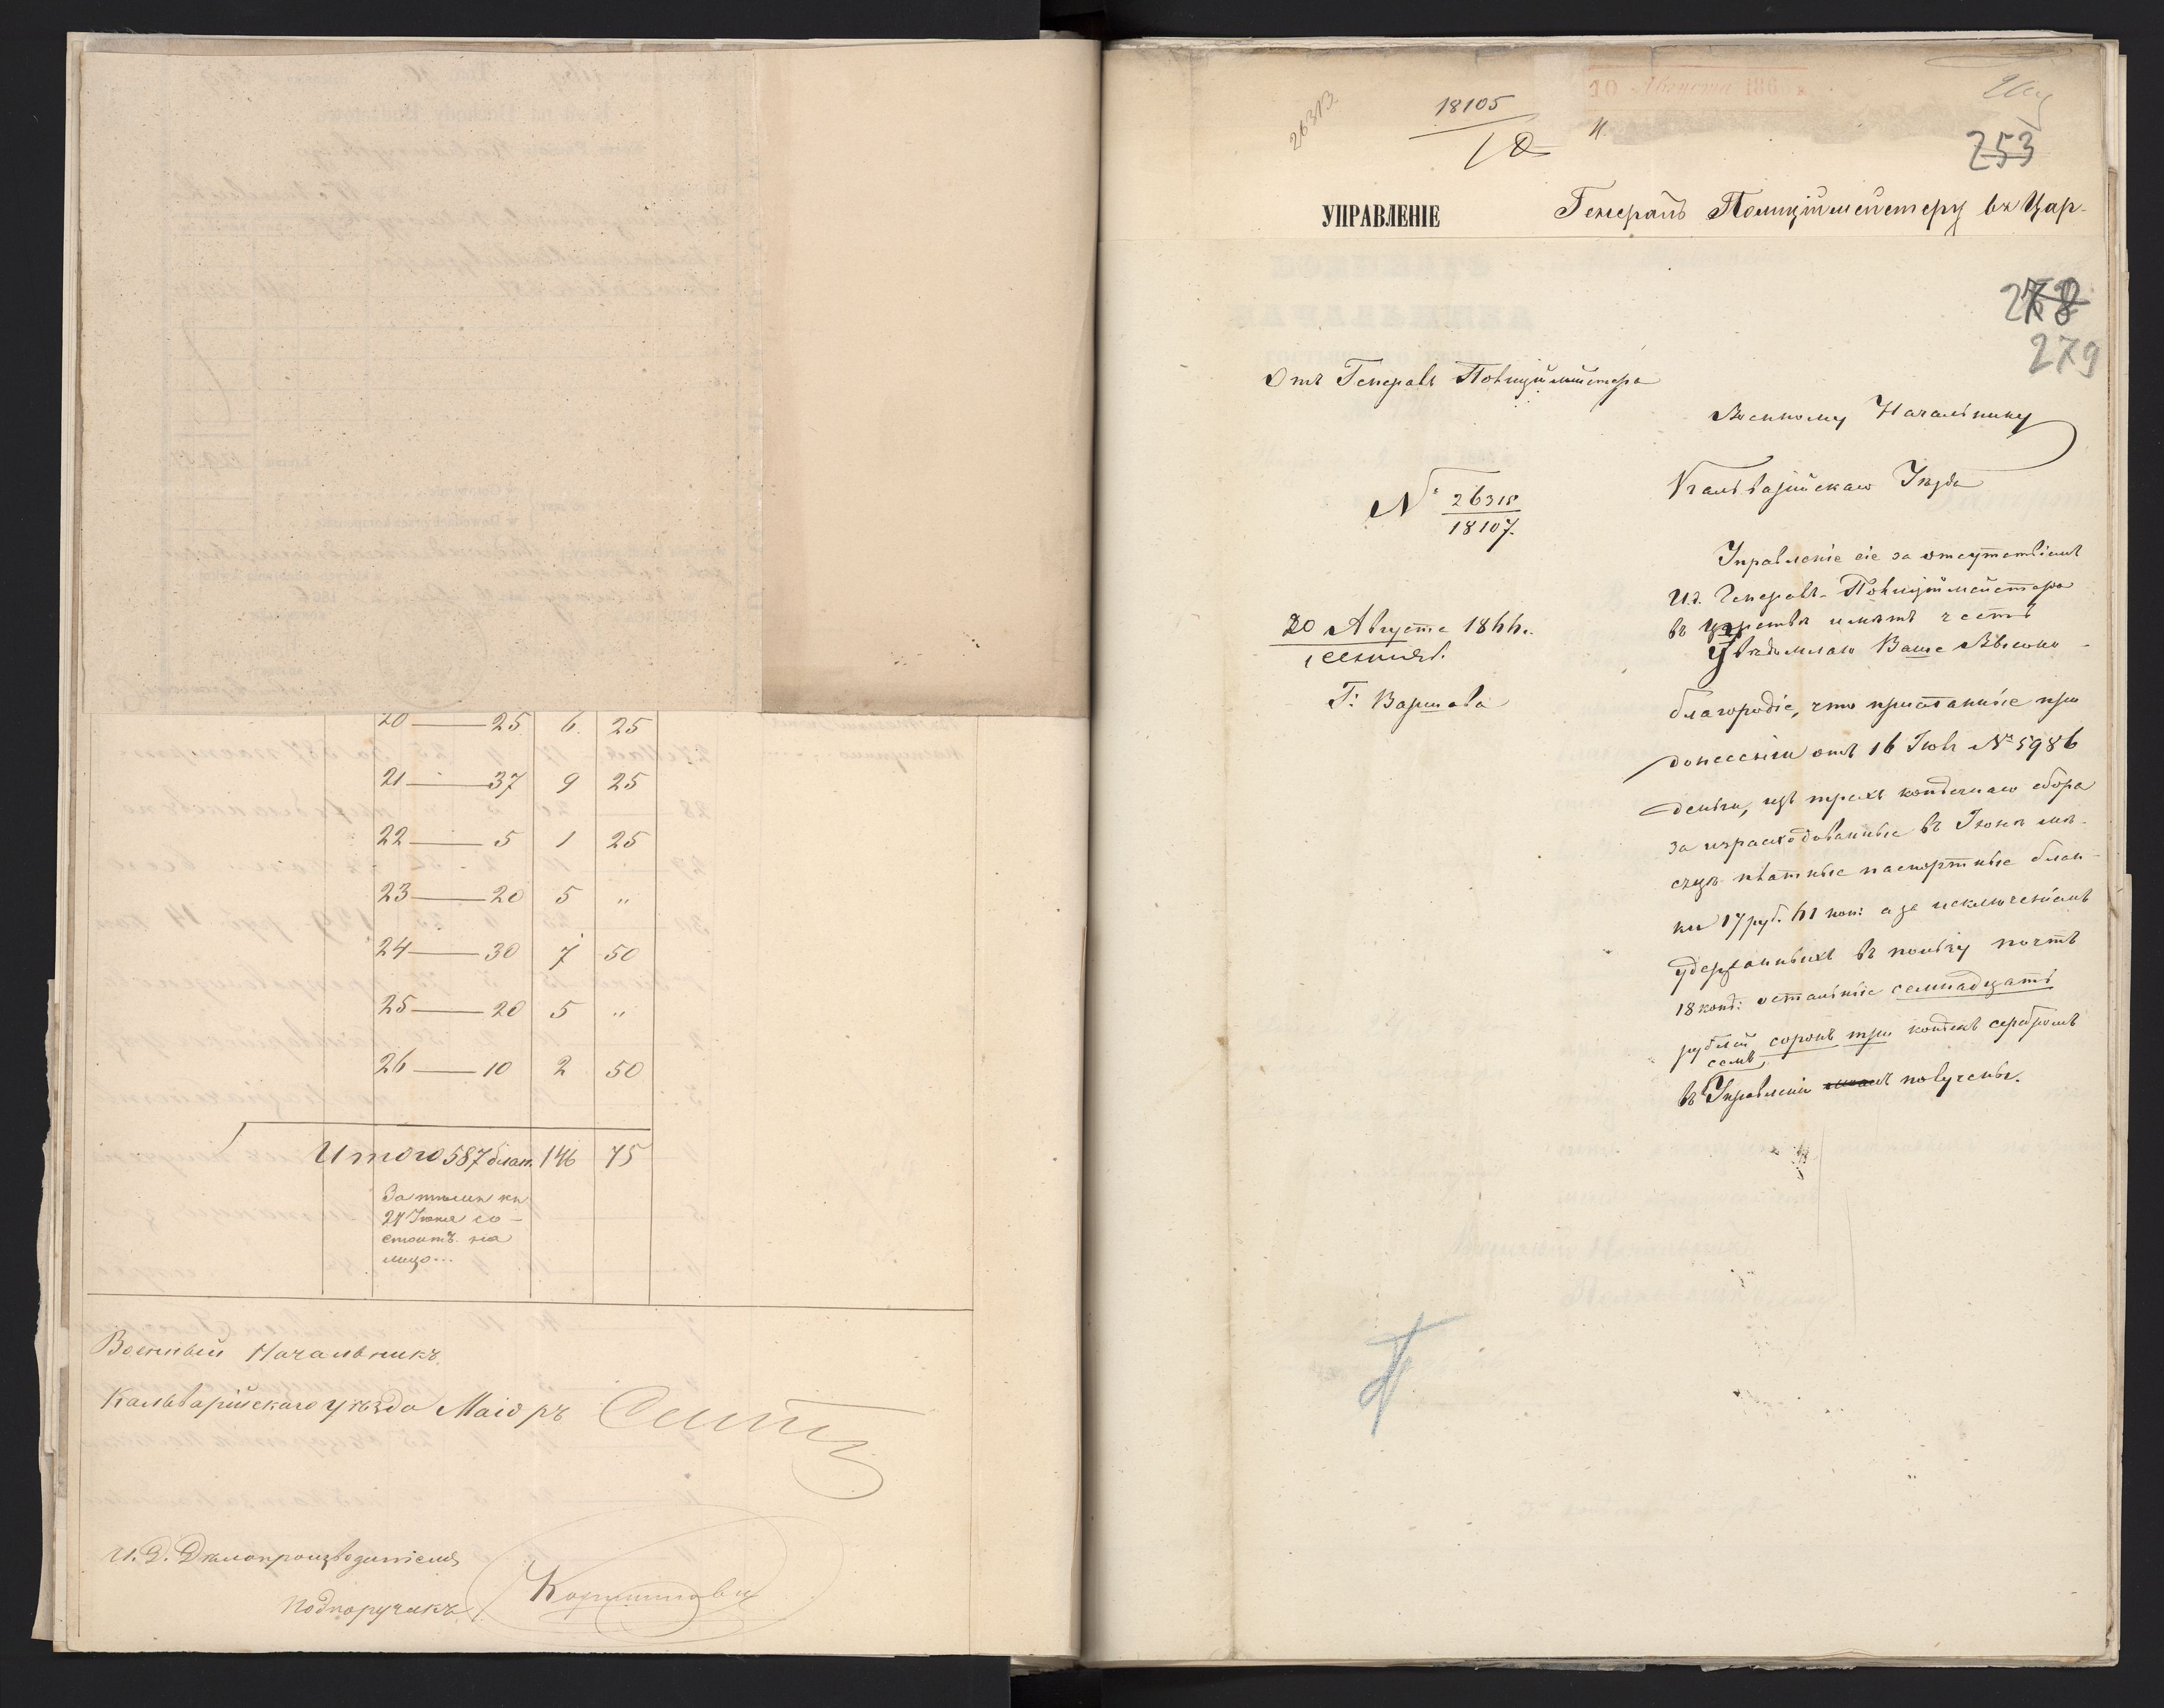 20 — 25 6. 25
21 — 37 9 25
22 — 5 1 25
23 — 20 5 "
24 — 30 7 50
25 — 20 5 "
26 — 10 2 50
Итого 587 блан. 146 75
За тѣмъ къ
27 Іюня со-
стоитъ на
лицо...
Военный Начальникъ
Кальварійскаго уѣзда Маіоръ
И. Д. Дѣлопроизводителя
Подпоручикъ
26313
18105
10 Августа 186
253
УПРАВЛЕНІЕ
Генералъ Полиціймейстеру въ Цар-
278
279
Отъ Генералъ Полиціймейстера
Военному Начальнику
Кальварійскаго Уѣзда
№ 26315
18107.
20 Августа 1866.
1 Сентяб.
Г: Варшава
Управленіе сіе за отсутствіемъ
Ид. Генералъ-Полиціймейстера
въ Царствѣ имѣетъ честь
Увѣдомляю Ваше Высоко-
благородіе, что присланные при
донесеніи отъ 16 Іюля № 5986
деньги, изъ трехъ копѣечнаго сбора
за израсходованные въ Іюнѣ мѣ-
сяцѣ платные паспортные блан-
ки 17 руб. 61 коп: а за исключеніемъ
удержанныхъ въ пользу почтъ
18 коп: остальные семнадцать
рублей сорокъ три копѣекъ серебромъ
семъ
въ Управленіи получены.